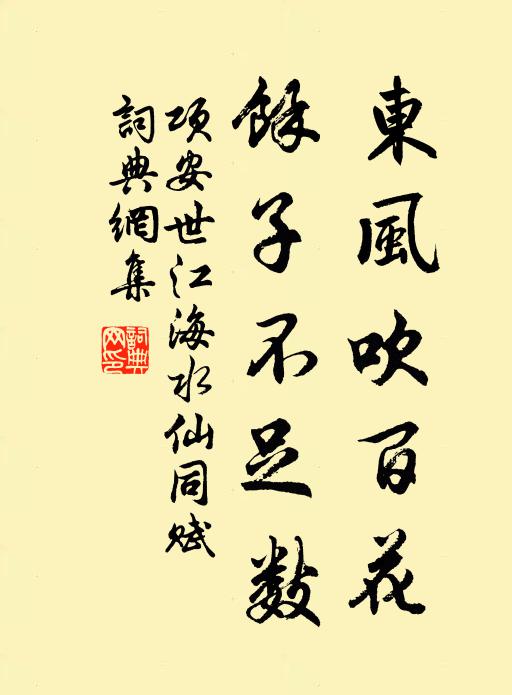 東風吹百花
餘子不足數
項安世江海水仙同賦
詞典網集
詞典網印